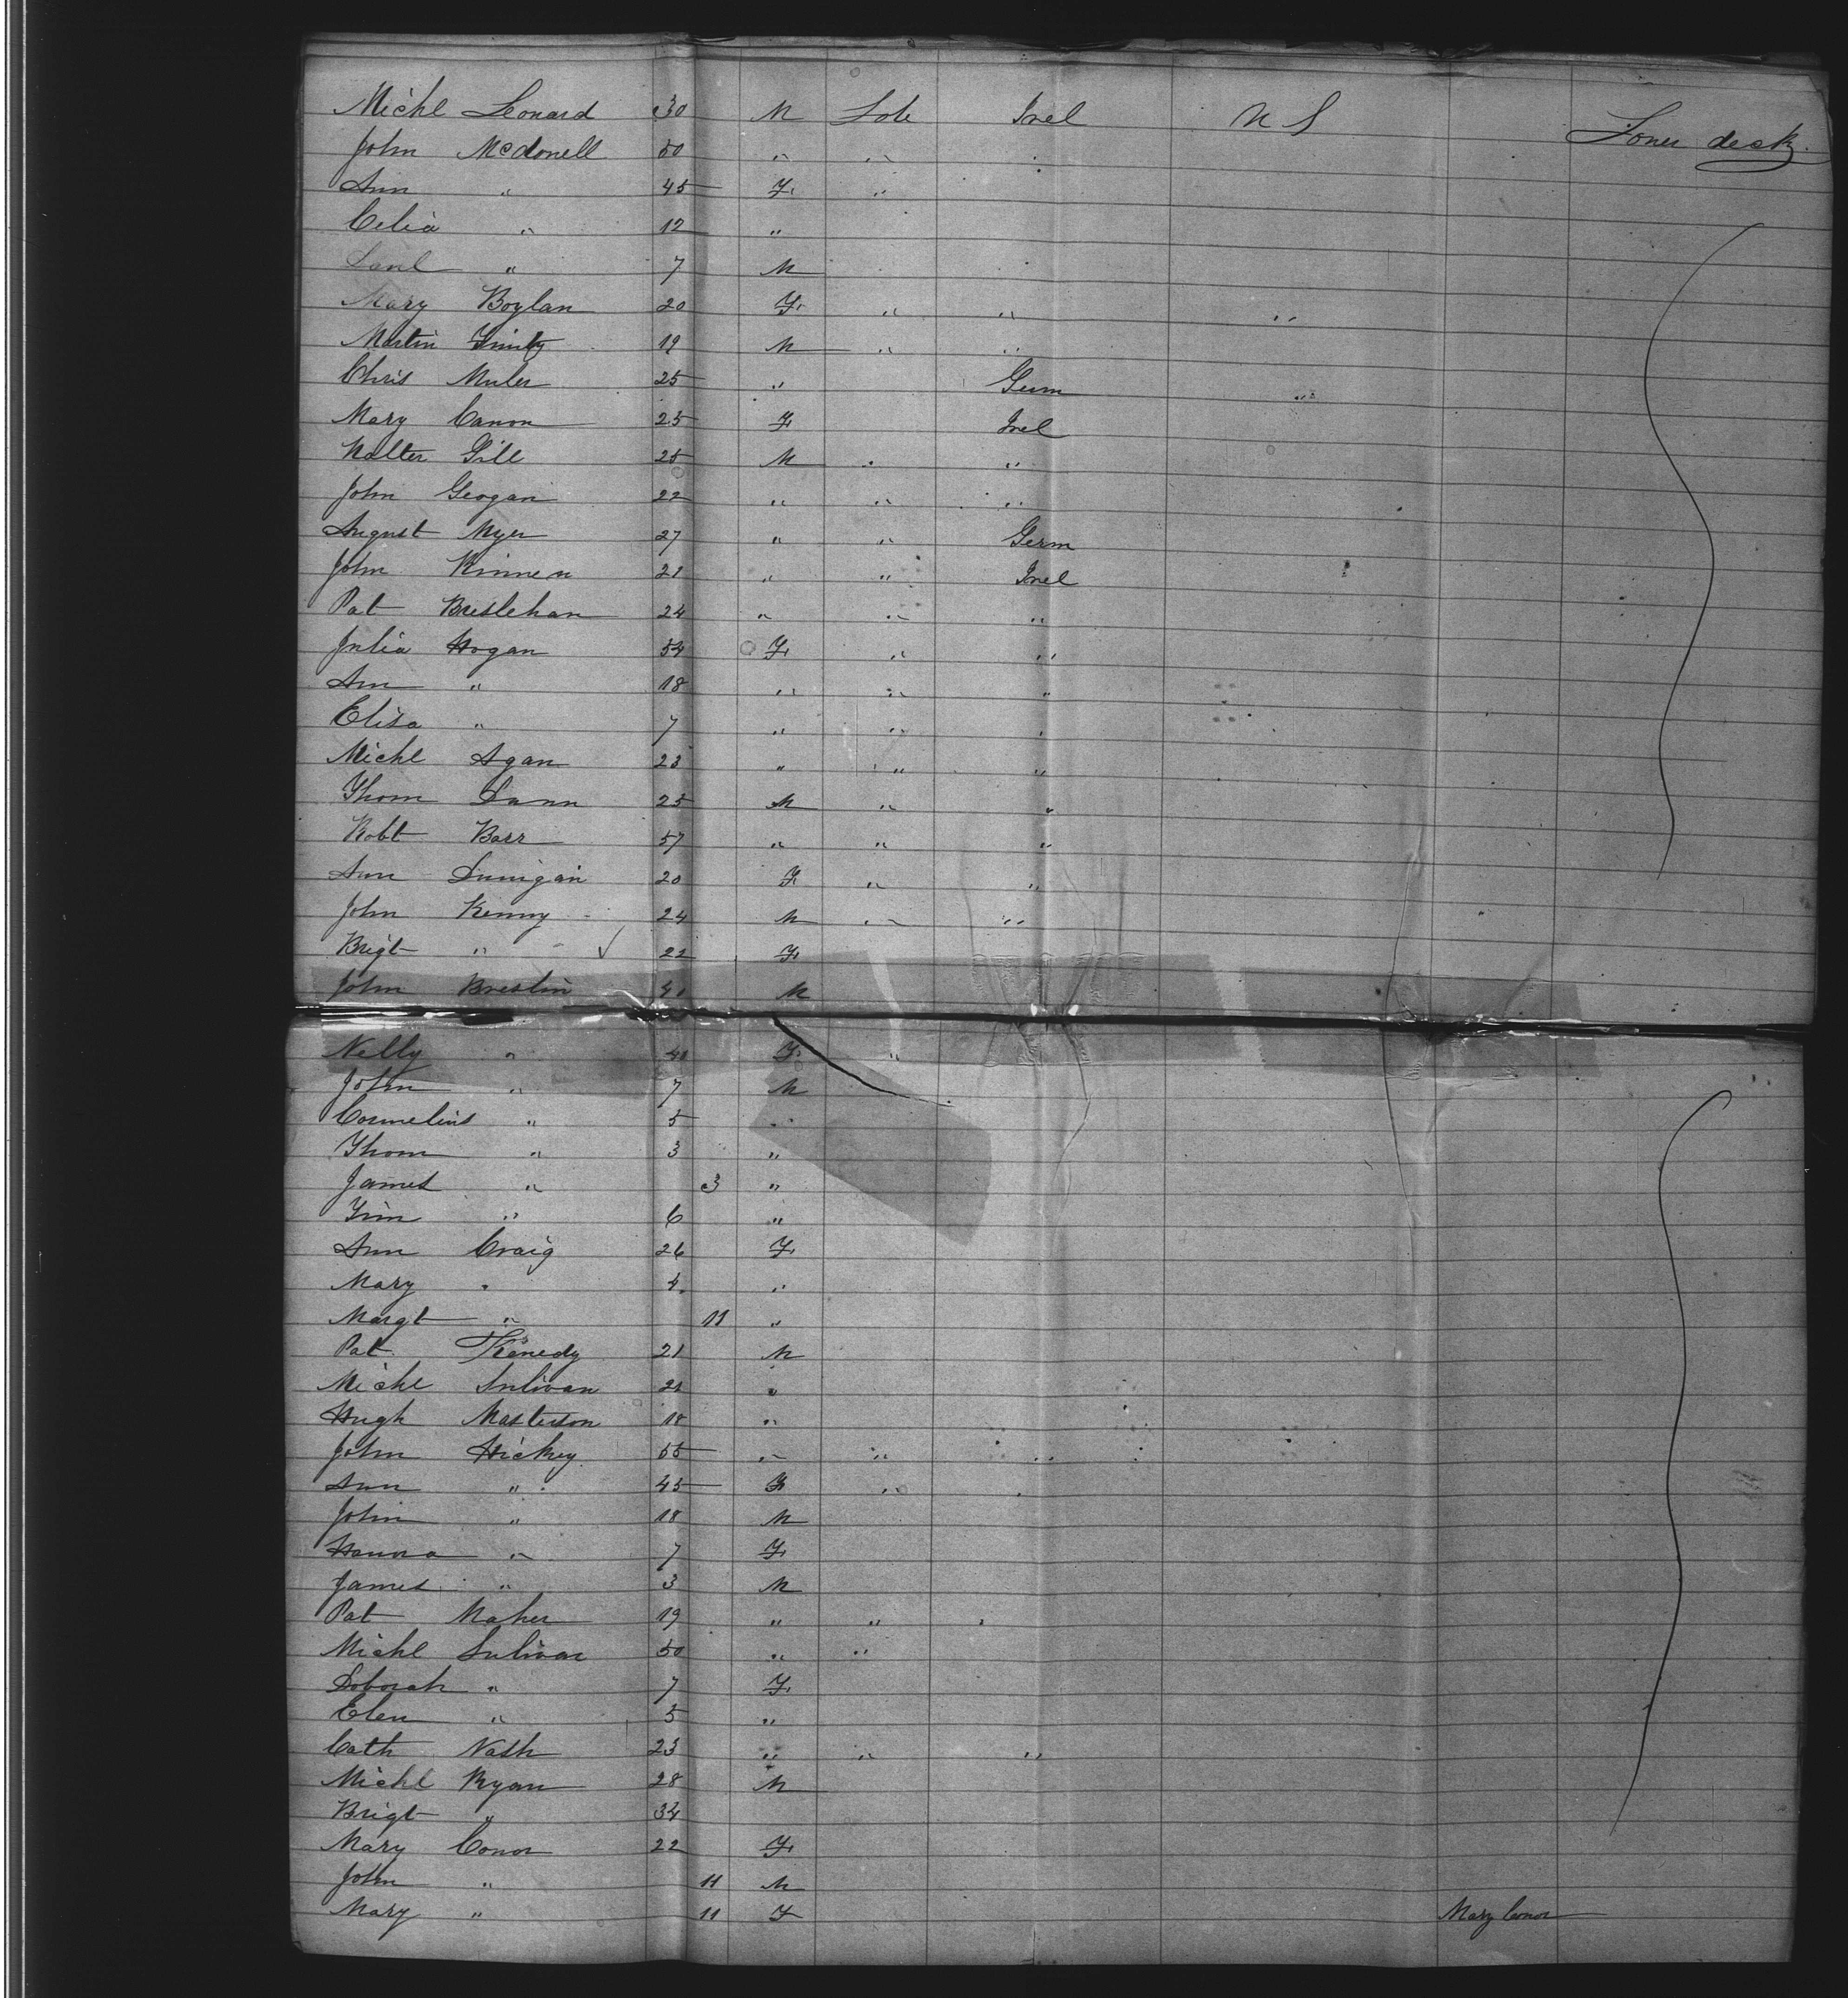 Michl Leonard 30 M Lob Irel U S Lower deck
John McDonell 50 " " "
Ann " 45 F. "
Celia " 12 "
Danl " 7 M
Mary Boylan 20 F. " " "
Martin 19 M " "
Chris Muler 25 " Germ "
Mary Canon 25 F Irel
Walter Gill 25 M " "
John Geogan 22 " " "
August Myer 27 " " Germ
John Kinnen 21 " " Irel
Pat Breslehan 24 " " "
Julia Hogan 54 F. " "
Ann " 18 " " "
Elisa " 7 " " "
Michl Agan 23 " " "
Thom Dann 25 M " "
Robt Barr 57 " " "
Ann Dunigan 20 F. " "
John Kenny 24 M " "
Brigt " 22 F.
John Breslin 41 M
Nelly " 41 F. "
John " 7 M
Cornelius " 5 "
Thom " 3 "
James " 3 "
Tim " 6 "
Ann Craig 26 F.
Mary " 4 "
Margt " 11 "
Pat Kenedy 21 M
Michl Sulivan 21 "
Hugh Masterson 18 "
John Hickey 55 " " "
Ann " 45 F. "
John " 18 M
Hanna " 7 F.
James " 3 M
Pat Maher 19 " " "
Michl Sulivan 50 " "
Deborah " 7 F.
Elen " 5 "
Cath Nash 23 " " "
Michl Ryan 28 M
Brigt " 34
Mary Conor 22 F.
John " 11 M
Mary " 11 F Mary Conor